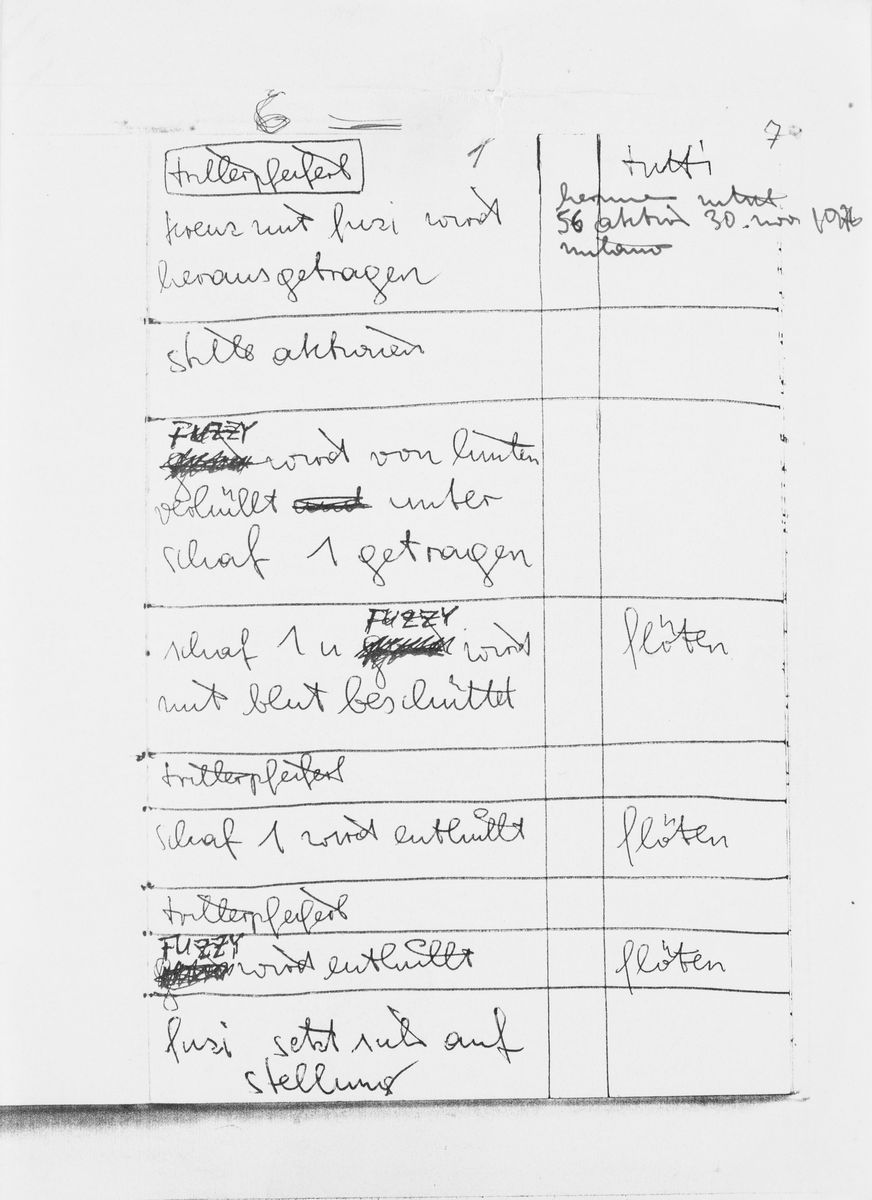 6
7
trillerpfeiferl
1
tutti
kreuz mit fuzi wird
herausgetragen
hermann nitsch
56 aktion 30. nov 1976
milano
stille aktionen
FUZZY
wird von hinten
verhüllt und unter
schaf 1 getragen
FUZZY
schaf 1 u wird
mit blut beschüttet
flöten
trillerpfeiferl
schaf 1 wird enthüllt
flöten
trillerpfeiferl
FUZZY
wird enthüllt
flöten
fuzi setzt sich auf
stellung